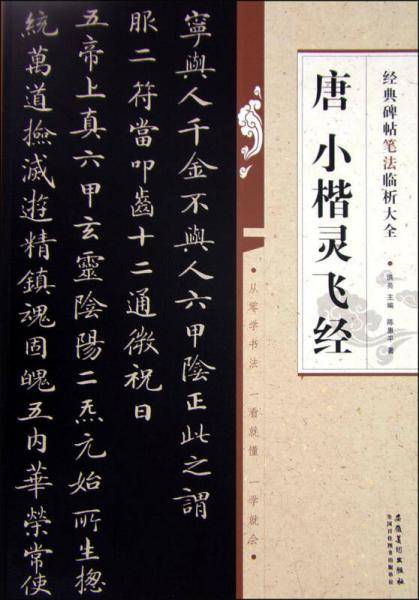 经典碑帖笔法临析大全
唐 小楷灵飞经
洪亮 主编 陈惠平 著
从零学书法 一看就懂 一学就会
寧與人千金不與人六甲陰正此之謂
服二符當叩齒十二通微祝曰
五帝上真六甲玄靈陰陽二炁元始所生揔
統萬道撿滅遊精鎮魂固魄五内華榮常使
安徽美术出版社
全国百佳图书出版单位